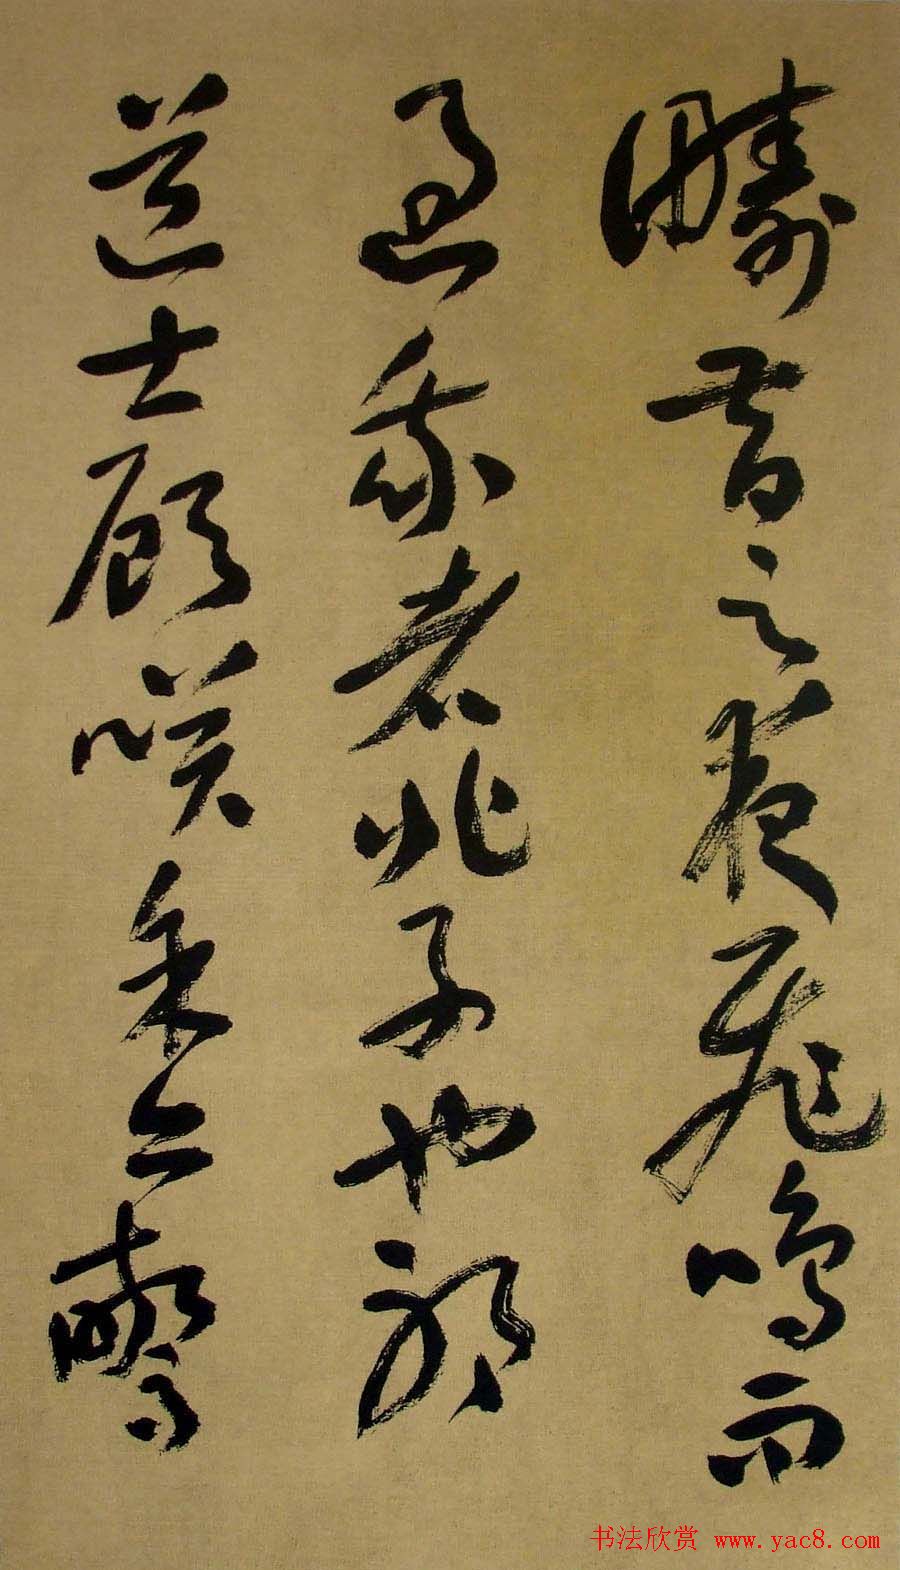 疇昔之夜飛鳴而
過我者非子也邪
道士顧咲余亦驚
书法欣赏 www.yac8.com